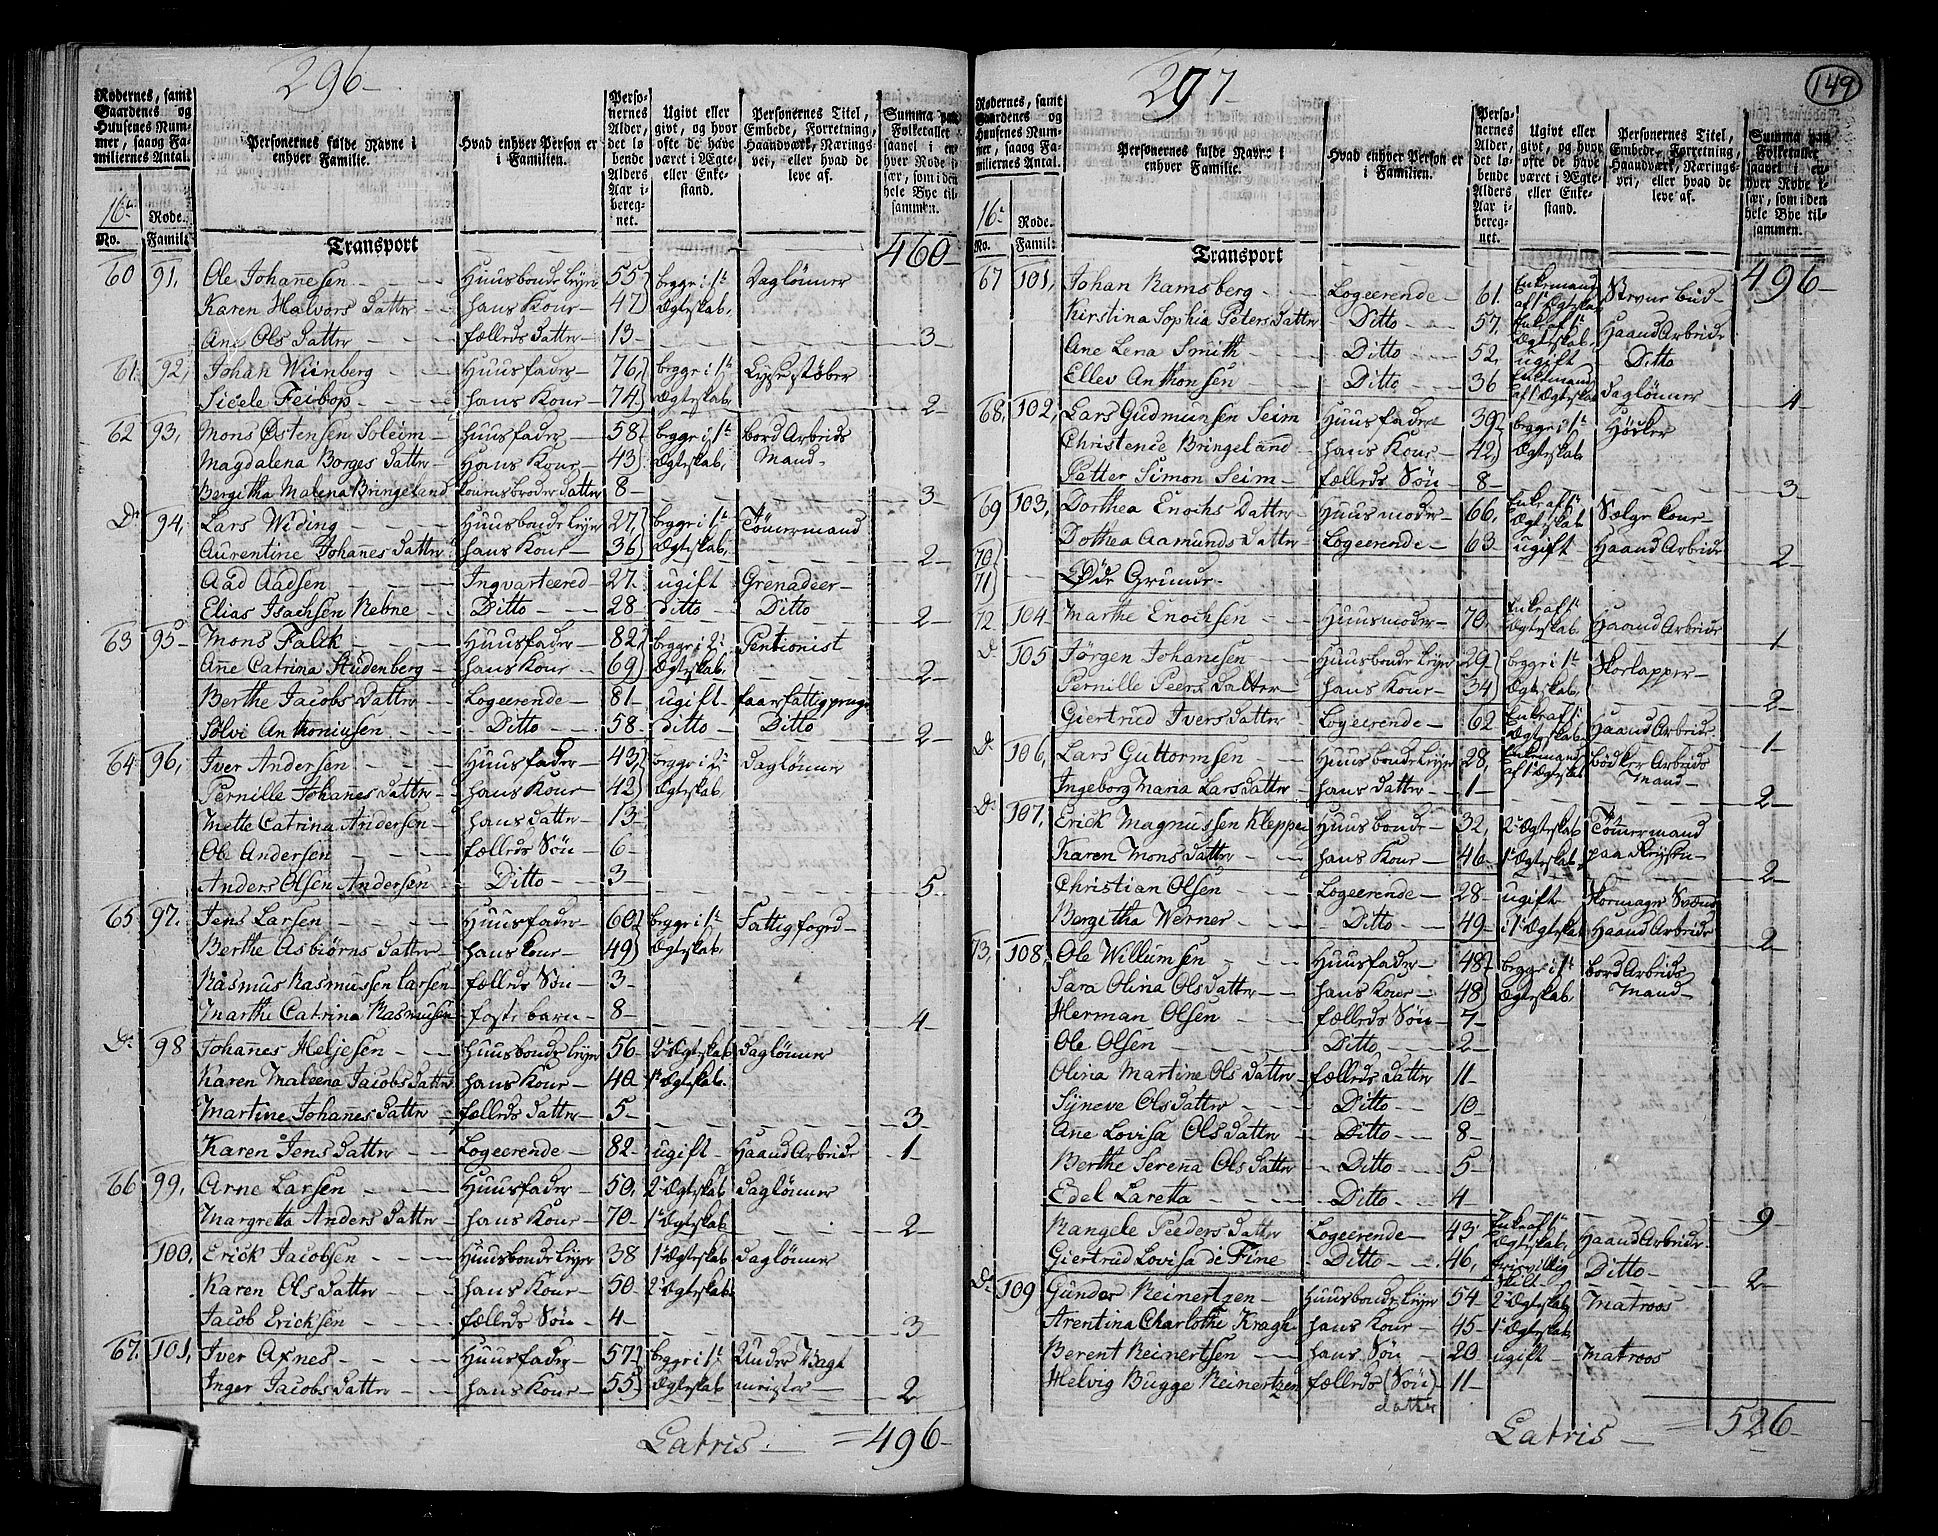 296
Rodernes, samt Gaardenes og Huusenes Nummer, saaog Familiernes Antal.
Personernes fulde Navne i enhver Familie.
Hvad enhver Person er i Familien.
Personernes Alder, det løbende Alders Aar iberegnet.
Ugivt eller givt, og hvor ofte de have været i Ægte- eller Enkestand.
Personernes Titel, Embede, Forretning, Haandværk, Næringsvei, eller hvad de leve af.
Summa paa Folketallet saavel i enhver Rode især, som i den hele Bye tilsammen.
16de Rode.
No. Famil:
Transport 460
60 91, Ole Johannesen Huusbonde Leyer 55 begge i 1te Daglønner
Karen Halvors Datter hans Kone 47 Ægteskab
Ane Ols Datter fælleds Datter 13 3
61. 92, Johan Wienberg Huusfader 76 begge i 1te Lysestøber
Sicele Feibop hans Kone 74 Ægteskab 2
62 93, Mons Østensen Soleim huusfader 58 begge i 1te bord Arbeids
Magdalena Borges Datter Hans Kone 43 Ægteskab Mand
Bergitha Malena Bringeland Konens broder Datter 8 3
Do 94, Lars Widing Huusbonde Leyer 27 begge i 1te Tømermand
Aurentine Johanes Datter hans Kone 36 Ægteskab 2
Aad Aadsen Ingvarteered 27 ugift Grenadeer
Elias Isachsen Nebne Ditto 28 Ditto Ditto 2
63 95 Mons Falck Huusfader 82 begge i 2de Pentionist
Ane Catrina Studenberg hans Kone 69 Ægteskab 2
Berthe Jacobs Datter Logeerende 81 ugift faar fattigpenge
Sølvi Anthoniusen Ditto 58 Ditto Ditto 2
64 96, Iver Andersen Huusfader 43 begge i 2de Daglønner
Pernille Johanes Datter hans Kone 42 Ægteskab
Mette Catrina Andersen hans Datter 13
Ole Andersen fælleds Søn 6
Anders Olsen Andersen Ditto 3 5
65 97. Jens Larsen Huusfader 60 begge i 1te Fattigfoged
Berthe Asbiørns Datter hans Kone 49 Ægteskab
Rasmus Rasmussen Larsen fælleds Søn 3
Marthe Catrina Rasmusen foste barn 8 4
Do 98 Johannes Heljesen Huusbonde Leyer 56 2de Ægteskab Daglønner
Karen Maleena Jacobs Datter hans Kone 40 1te Ægteskab
Martine Johanes Datter fælleds Datter 5 3
Karen Jens Datter Logeerende 82 ugift Haand Arbeide 1
66 99, Arne Larsen Huusfader 50 2de Ægteskab Daglønner
Margretta Anders Datter hans Kone 70 1te Ægteskab 2
100, Erick Jacobsen Huusbonde Leyer 38 1te Ægteskab Daglønner
Karen Ols Datter hans Kone 50 2de Ægteskab
Jacob Ericksen fælleds Søn 4 3
67. 101, Iver Axnes Huusfader 57 begge i 1te Under Vagt
Inger Jacobs Datter hans Kone 55 Ægteskab meister 2
Latris 496
297
149
Rodernes, samt Gaardenes og Huusenes Nummer, saaog Familiernes Antal.
Personernes fulde Navne i enhver Familie.
Hvad enhver Person er i Familien.
Personernes Alder, det løbende Alders Aar iberegnet.
Ugivt eller givt, og hvor ofte de have været i Ægte- eller Enkestand.
Personernes Titel, Embede, Forretning, Haandværk, Næringsvei, eller hvad de leve af.
Summa paa Folketallet saavel i enhver Rode især, som i den hele Bye tilsammen.
16de Rode.
No. Famil:
Transport 496
67 101, Johan Ramsberg Logeerende 61 Enkemand af 1te Ægteskab
Kirstina Sophia Peters Datter Ditto 57 Enke af 1te Ægteskab Haand Arbeide
Ane Lena Smith Ditto 52 ugift Ditto
Ellev Anthonsen Ditto 36 Enkemand af 1te Ægteskab Daglønner 4
68, 102, Lars Gudmunsen Seim Huusfader 39 begge i 1te Høcker
Christence Bringeland hans Kone 42 Ægteskab
Petter Simon Seim fælleds Søn 8 3
69 103, Dorthea Enochs Datter Huusmoder 66 Enke af 1te Ægteskab Sælge
Dothea Aamunds Datter Logeerende 63 ugift Haand Arbeide 2
70
71 Øde Grunde
72 104 Marthe Enochsen Huusmoder 70 Enke af 1te Ægteskab Haand Arbeide 1
Do 105 Jørgen Johanesen Huusbonde Leyer 29 begge i 1te Skoelapper
Pernille Peers Datter hans Kone 34 Ægteskab 2
Giertrud Ivers Datter Logeerende 62 Enke af 1te Ægteskab Haand Arbeide 1
Do 106, Lars Guttormsen Huusbonde Leyer 28 Enkemand af 1te Ægteskab bødker Arbeids Mand
Ingeborg Maria Lars Datter hans Datter 1 2
Do 107, Erick Magnussen Kleppe Huusbonde 32 2de Ægteskab Tømermand
Karen Mons Datter hans Kone 46 1te Ægteskab paa Reysen 2
Christian Olsen Logeerende 28 ugift Skomager Svend
Bergitha Werner Ditto 49 i 1te Ægteskab Haand Arbeide 2
73, 108 Ole Willumsen Huusfader 48 begge i 1te bord Arbeids
Sara Olina Ols Datter hans Kone 48 Ægteskab Mand
Herman Olsen fælleds Søn 7
Ole Olsen Ditto 2
Olina Martine Ols Datter fælleds Datter 11
Syneve Ols Datter Ditto 10
Ane Lovisa Ols Datter Ditto 8
Berthe Serena Ols Datter Ditto 5
Edel Laretta Ditto 4 9
Rangele Peeders Datter Logeerende 43 Enke af 1te Ægteskab Haand Arbeide
Giertrud Lovisa de Fine Ditto 46 frivillig skilt Ditto 2
Do 109 Gunder Reinertzen Huusbonde Leyer 54 2de Ægteskab Matroos
Arentina Charlothe Kragh hans Kone 45 1te Ægteskab
Berent Reinertsen hans Søn 20 ugift Matroos
Helvig Bugge Reinertzen fælleds (Søn) 11
datter
Latris 526